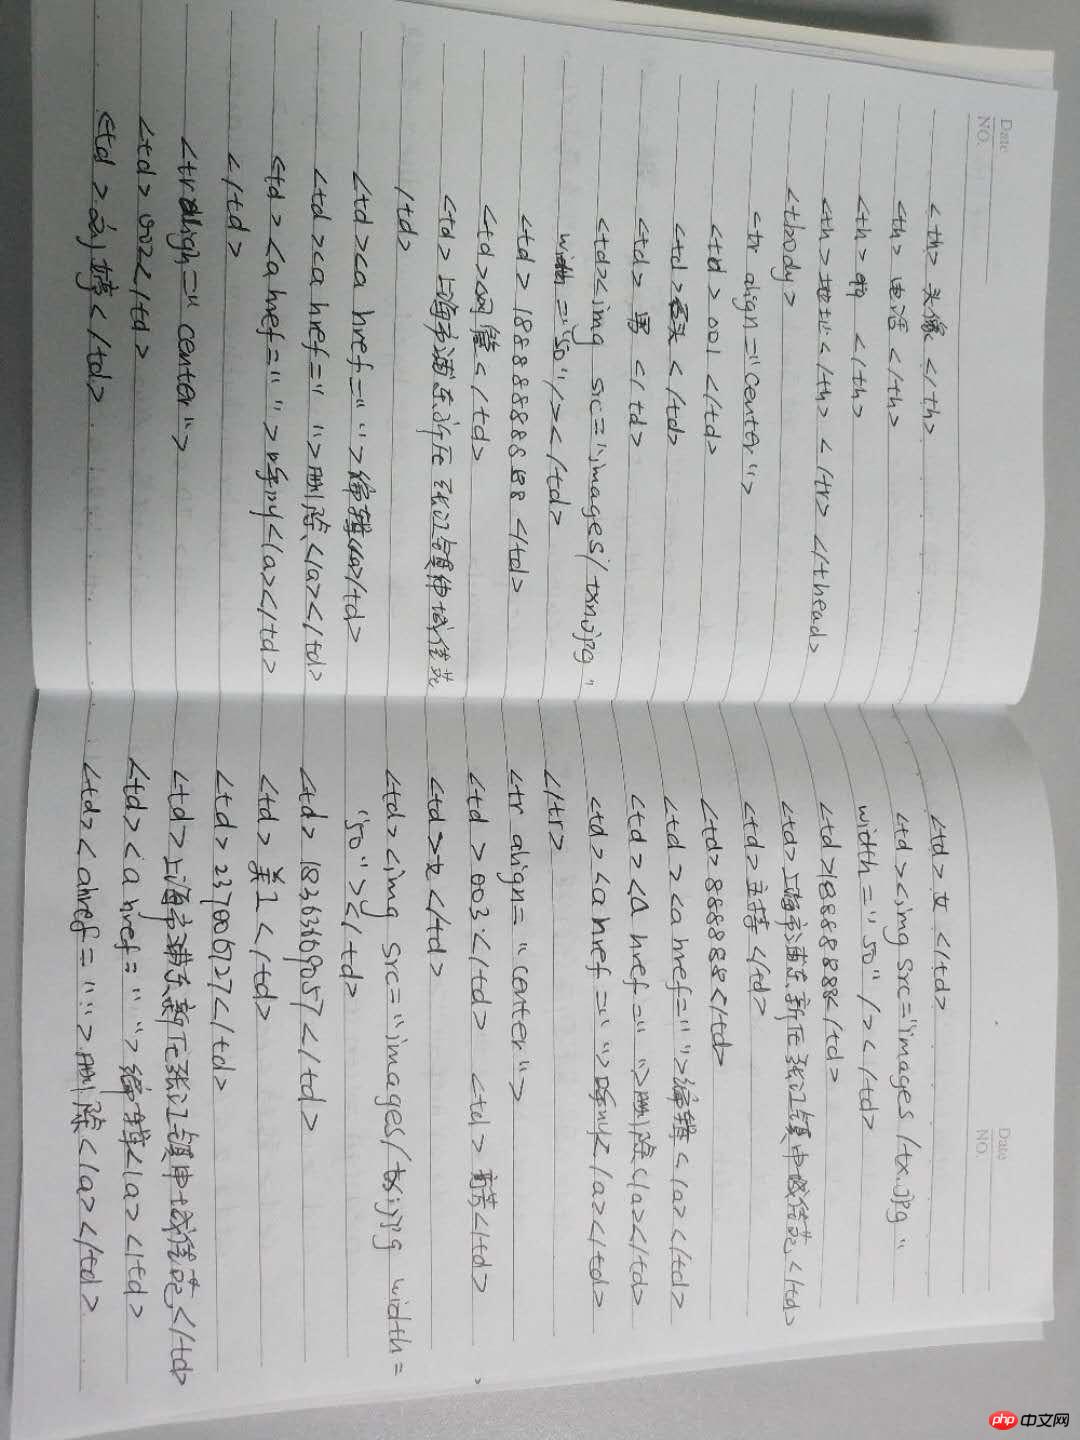 Date
NO.
<th>头像</th>
<th>电话</th>
<th> </th>
<th>地址</th></tr></thead>
<tbody>
<tr align="center">
<td>001</td>
<td> </td>
<td>男</td>
<td><img src="images/txn.jpg"
width="50"/></td>
<td>18888888888</td>
<td>网管</td>
<td>上海市浦东新区张江镇申城佳苑
/td>
<td><a href="">编辑</a>/td>
<td><a href="">删除</a></td>
<td><a href="">呼叫</a></td>
</td>
<tr align="center">
<td>002</td>
<td>刘 </td>
Date
NO.
<td>女</td>
<td><img src="images/tx.jpg"
width="50"/></td>
<td>18888888</td>
<td>上海市浦东新区张江镇申城佳苑</td>
<td>主持</td>
<td>888888</td>
<td><a href="">编辑</a></td>
<td><a href="">删除</a></td>
<td><a href="">呼叫</a></td>
</tr>
<tr align="center">
<td>003</td> <td> </td>
<td>女</td>
<td><img src="images/ width=
"50"></td>
<td>18363669057</td>
<td>美工</td>
<td>237006727</td>
<td>上海市浦东新区张江镇申城佳苑</td>
<td><a href="">编辑</a></td>
<td><a href="">删除</a></td>
php中文网